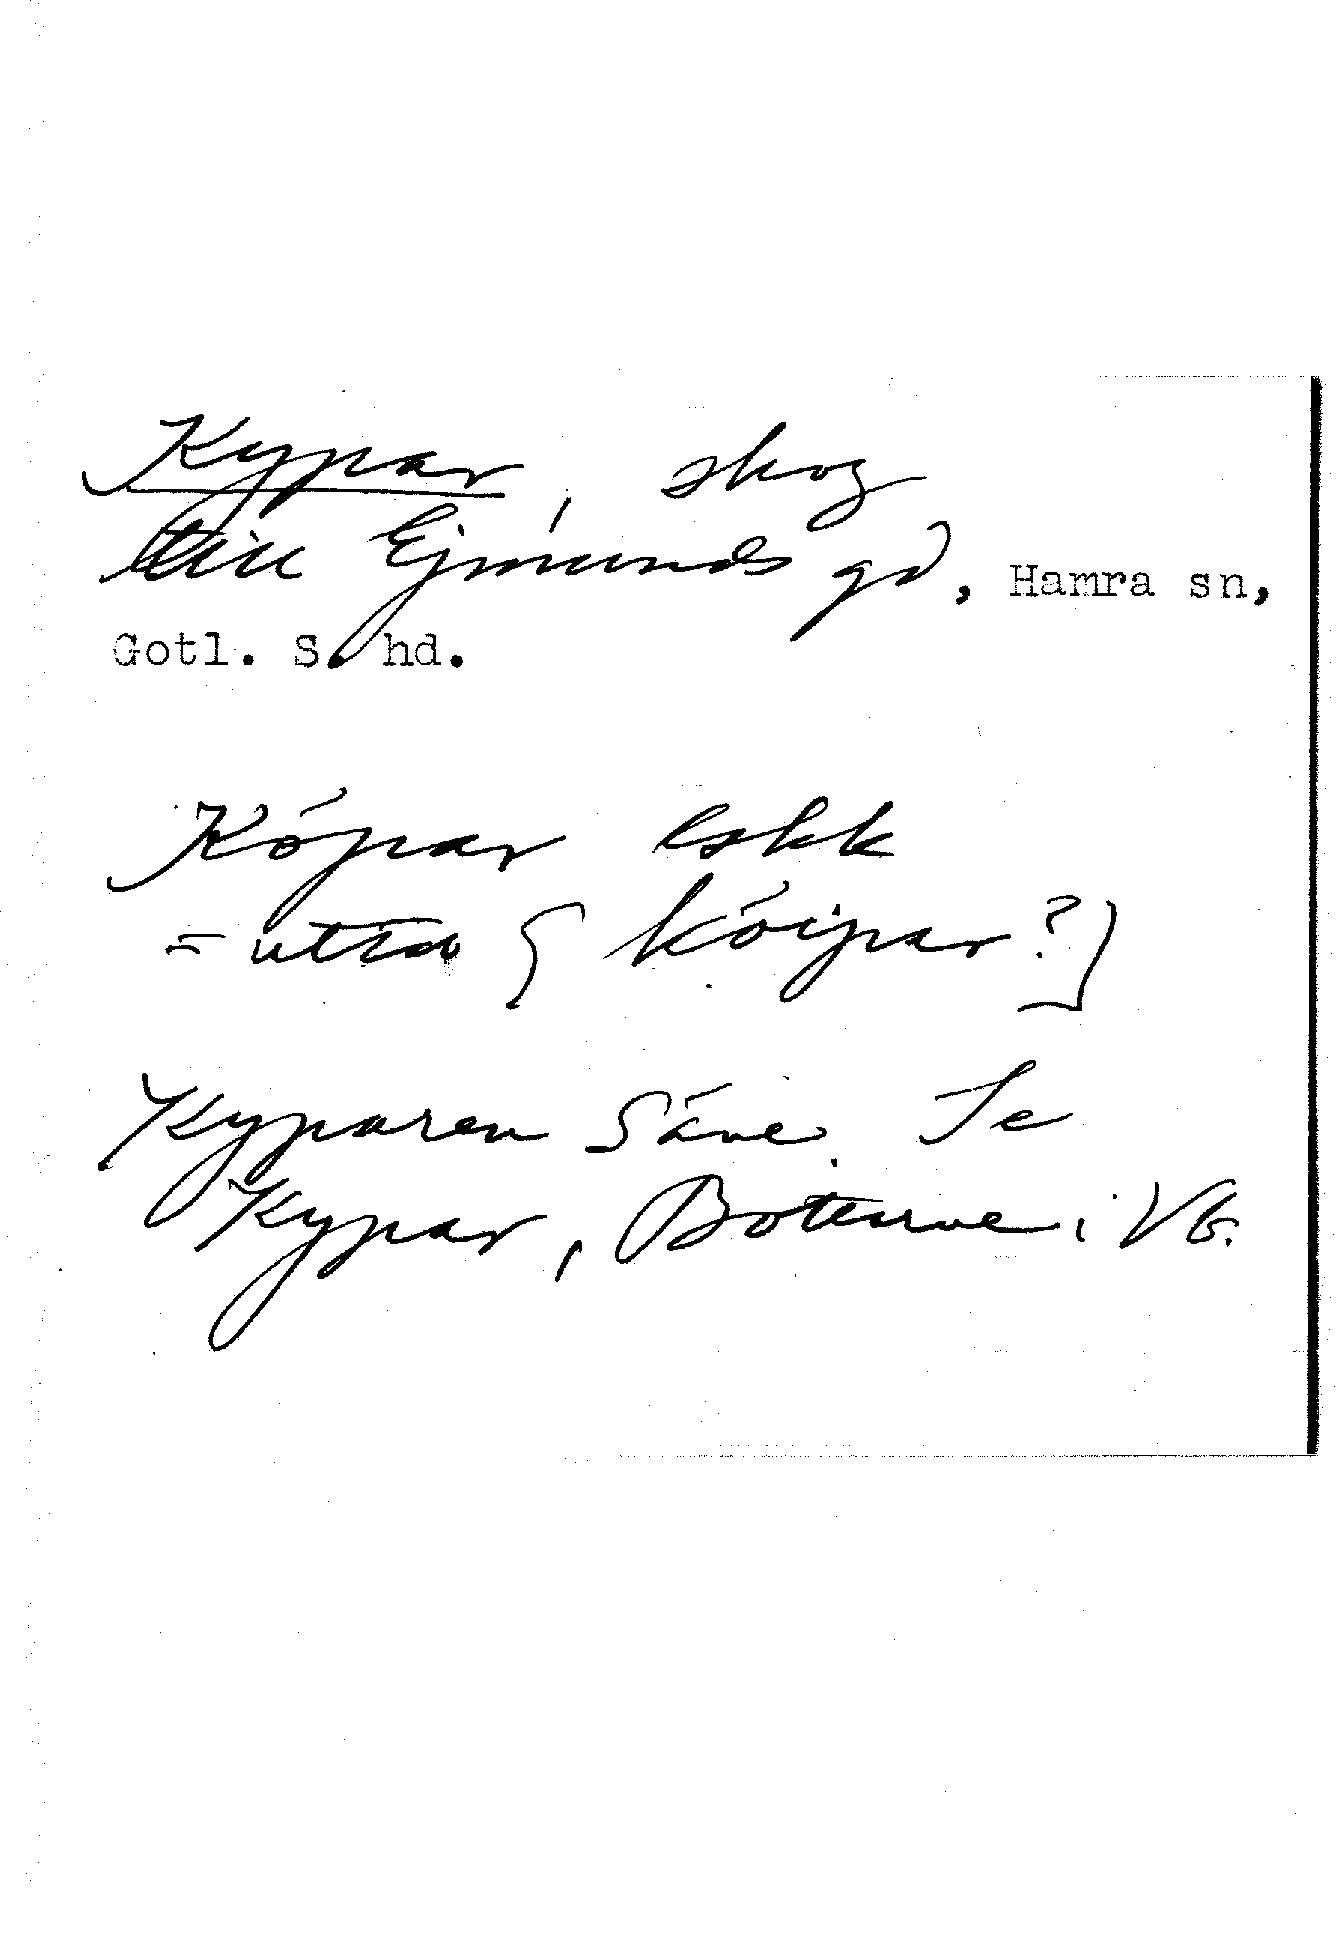 Kypar, skog
till Ejmunds gd, Hamra sn,
Gotl. S. hd.
Kópar eskk
= uttal [kóipar?]
Kyparen Säve. Se
Kypar, Boterve i Vb.